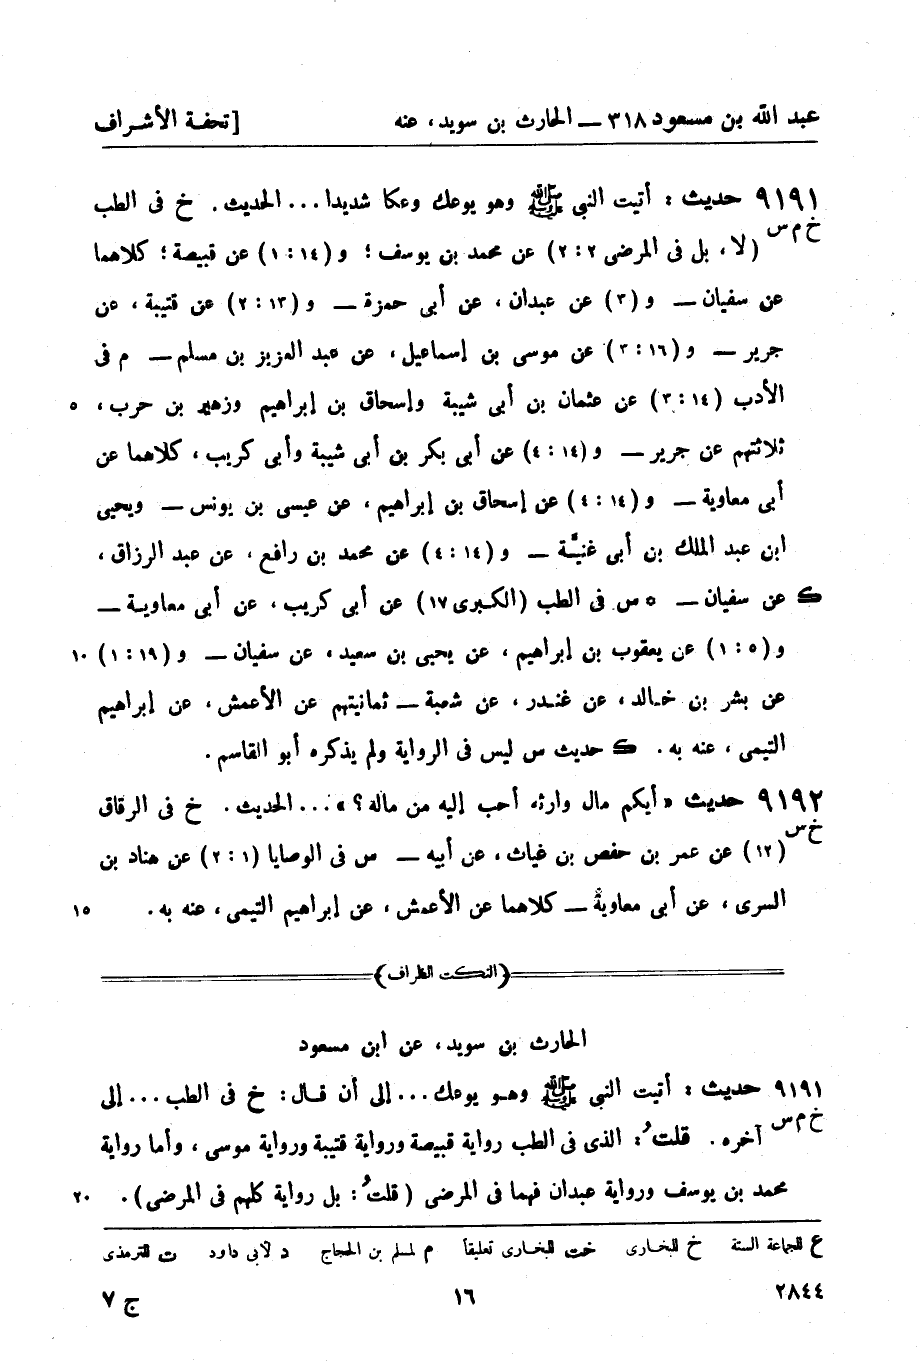 عبد الله بن مسعود ٣١٨ — الحارث بن سويد، عنه [تحفة الأشراف
٩١٩١ حديث : أتيت النبي ﷺ وهو يوعك وعكا شديدا ... الحديث . خ فى الطب
خ م س (لا، بل فى المرضى ٢ : ٢) عن محمد بن يوسف ؛ و (١٤ : ١) عن قبيصة ؛ كلاهما
عن سفيان — و (٣) عن عبدان، عن أبى حمزة — و (١٣ : ٢) عن قتيبة، عن
جرير — و (١٦ : ٣) عن موسى بن إسماعيل، عن عبد العزيز بن مسلم — م فى
الأدب (١٤ : ٣) عن عثمان بن أبى شيبة وإسحاق بن إبراهيم وزهير بن حرب، ٥
ثلاثتهم عن جرير — و (١٤ : ٤) عن أبى بكر بن أبى شيبة وأبى كريب، كلاهما عن
أبى معاوية — و (١٤ : ٤) عن إسحاق بن إبراهيم، عن عيسى بن يونس — ويحيى
ابن عبد الملك بن أبى غنيَّة — و (١٤ : ٤) عن محمد بن رافع، عن عبد الرزاق،
ك عن سفيان — ٥ س فى الطب (الكبرى ١٧) عن أبى كريب، عن أبى معاوية —
و (٥ : ١) عن يعقوب بن إبراهيم، عن يحيى بن سعيد، عن سفيان — و (١٩ : ١) ١٠
عن بشر بن خالد، عن غندر، عن شعبة — ثمانيتهم عن الأعمش، عن إبراهيم
التيمى، عنه به . ك حديث س ليس فى الرواية ولم يذكره أبو القاسم .
٩١٩٢ حديث « أيكم مال وارثه أحب إليه من ماله ؟ » ... الحديث . خ فى الرقاق
خ س (١٢) عن عمر بن حفص بن غياث، عن أبيه — س فى الوصايا (١ : ٢) عن هناد بن
السرى، عن أبى معاوية — كلاهما عن الأعمش، عن إبراهيم التيمى، عنه به . ١٥
(النكت الظراف)
الحارث بن سويد، عن ابن مسعود
٩١٩١ حديث : أتيت النبى ﷺ وهو يوعك ... إلى أن قال : خ فى الطب ... إلى
خ م س آخره . قلتُ : الذى فى الطب رواية قبيصة ورواية قتيبة ورواية موسى، وأما رواية
محمد بن يوسف ورواية عبدان فهما فى المرضى (قلتُ : بل رواية كلهم فى المرضى) . ٢٠
ع للجماعة الستة خ للبخارى خت للبخارى تعليقاً م لمسلم بن الحجاج د لأبى داود ت للترمذى
٢٨٤٤ ١٦ ج ٧